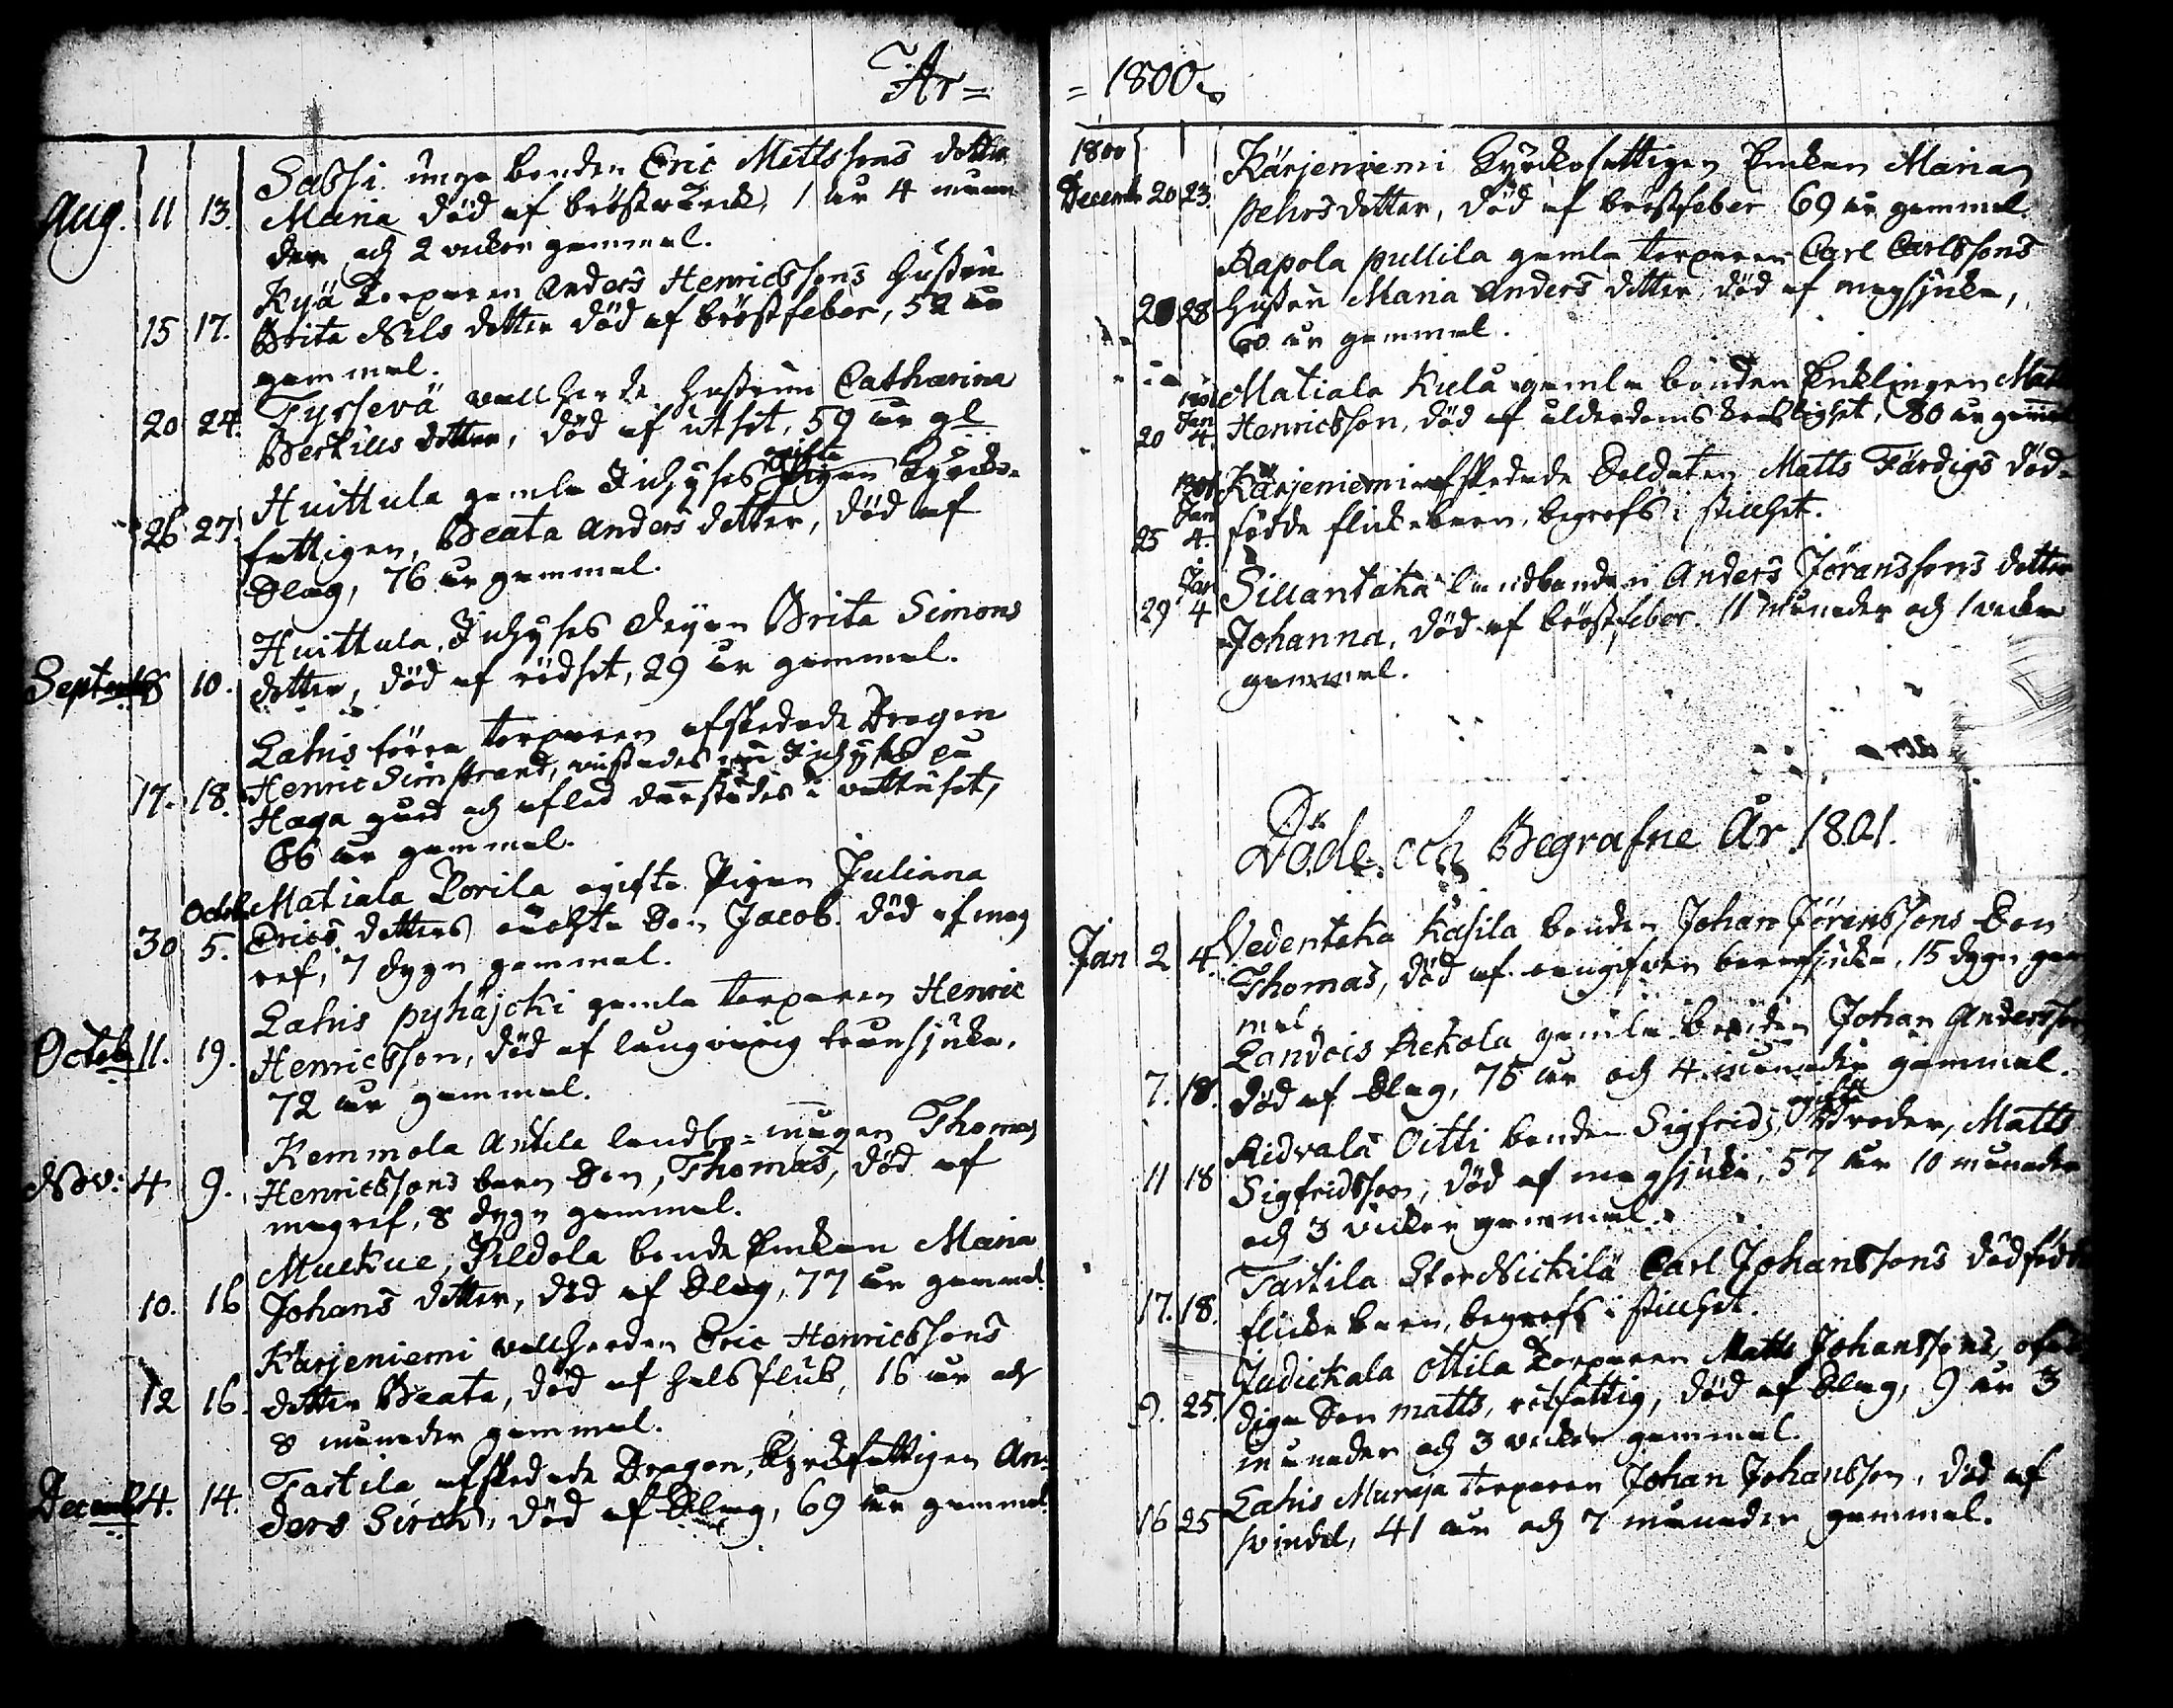 År =
Aug. 11 13. Sassi unga bonden Eric Mattssons dotter
Maria död af bröstwärck, 1 år 4 måna
der och 2 veckor gammal.
15 17. Kyä Torparen Anders Henricssons hustru
Brita Nils dotter död af bröstfeber, 52 år
gammal.
20 24. Tyrsevä vallherde hustrun Catharina
Bertills dotter, död af utsot, 59 år gl
26 27. Huittula gamla Inhyses ogifta Pigan Kyrcko-
fattigen, Beata Anders dotter, död af
Slag, 76 år gammal.
Septemb 8 10. Huittula, Inhyses Pigan Brita Simons
dotter, död af rödsot, 29 år gammal.
17. 18. Lahis förra torparen afskedade Dragon
Henric Simstrand, vistades Inhyses på
Haga gård och afled därstädes i vattusot,
66 år gammal.
30 Octob. 5. Matiala Porila ogifta Pigan Juliana
Erics dotters oächta Son Jacob död af mag
ref, 7 dygn gammal.
Octob. 11. 19. Lahis pyhäjocki gamla torparen Henric
Henricsson, död af långvarig transjuka,
72 år gammal.
Nov: 4 9. Kemmola Antila landbo-mågen Thomas
Henricssons barn Son, Thomas, död af
magref, 8 dygn gammal.
10. 16 Muekue, Pildola bonde Enkan Maria
Johans dotter, död af Slag, 77 år gammal.
12 16. Kärjeniemi vallherden Eric Henricssons
dotter Beata, död af halsfluss, 16 år och
8 månader gammal.
Decemb 4. 14. Tartila afskedade Dragon, Kyrckfattigen An-
ders Sirck, död af Slag, 69 år gammal.
= 1800.
1800
Decemb 20 23. Kärjeniemi Kyrckofattigen Enkan Maria
Pehrsdotter, död af bröstfeber 69 år gammal.
28 Rapola pullila gamla torparen Carl Carlssons
hustru Maria Anders dotter, död af magsjuka,
60 år gammal.
20 1801 Jan 4. Matiala Kulä gamla bonden Enklingen Matts
Henricsson, död af ålderdoms bräcklighet, 80 år gammal
25 1801 Jan 4. Kärjeniemi afskedade Soldaten Matts Färdigs död-
födde flickebarn, begrofs i stillhet.
29 Jan 4 Sillantaka landbonden Anders Jöranssons dotter
Johanna, död af bröstfeber. 11 månader och 1 vecka
gammal.
Döde och Begrafne År 1801.
Jan 2 4. Vedentaka Kasila bonden Johan Jöranssons Son
Thomas, död af oangifven barnsjuka, 15 dygn gam
mal.
7. 18. Landois Rekola gamla bonden Johan Andersson
död af Slag, 75 år och 4 månader gammal.
11 18 Ridvala Oitti bonden Sigfrids, ogifta Broder, Matts
Sigfridsson, död af magsjuka, 57 år 10 månader
och 3 veckor gammal.
17. 18. Tartila Stor Nickilä Carl Johanssons dödfödde
flickebarn, begrofs i stillhet.
9. 25. Judickala Ottila Torparen Matts Johanssons, ofär
diga Son Matts, rotfattig, död af Slag, 9 år 3
månader och 3 veckor gammal.
16 25 Lahis Muraja torparen Johan Johansson, död af
svindel, 41 år och 7 månader gammal.